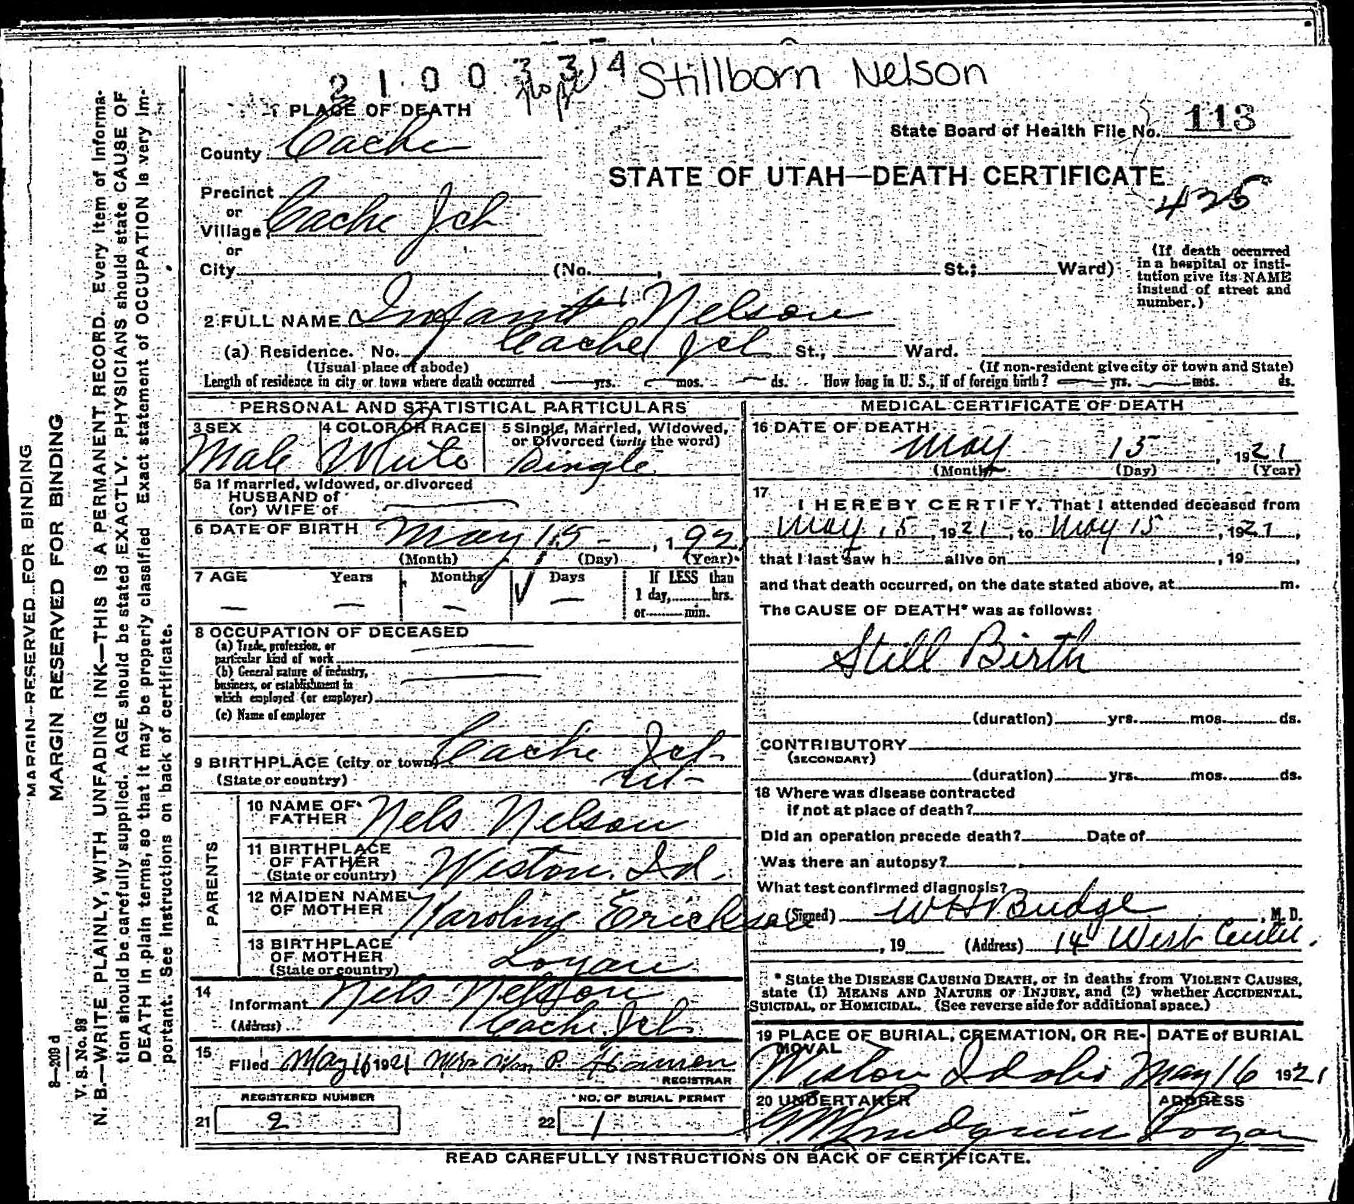 2 1 0 0 3 3 14 Stillborn Nelson
1 PLACE OF DEATH
State Board of Health File No. 113
County Cache
STATE OF UTAH—DEATH CERTIFICATE
425
Precinct
or
Village Cache Jct
or
City (No. , St.; Ward)
(If death occurred
in a hospital or insti-
tution give its NAME
instead of street and
number.)
2 FULL NAME Infant Nelson
(a) Residence. No. Cache Jct St., Ward.
(Usual place of abode) (If non-resident give city or town and State)
Length of residence in city or town where death occurred — yrs. — mos. — ds. How long in U. S., if of foreign birth? — yrs. — mos. ds.
PERSONAL AND STATISTICAL PARTICULARS
3 SEX 4 COLOR OR RACE 5 Single, Married, Widowed,
or Divorced (write the word)
Male White Single
5a If married, widowed, or divorced
HUSBAND of
(or) WIFE of —
6 DATE OF BIRTH May 15 – , 192
(Month) (Day) (Year)
7 AGE Years Months Days If LESS than
1 day, hrs.
or min.
— — — —
8 OCCUPATION OF DECEASED
(a) Trade, profession, or
particular kind of work
(b) General nature of industry,
business, or establishment in
which employed (or employer)
(c) Name of employer
9 BIRTHPLACE (city or town) Cache Jct
(State or country) Ut—
PARENTS
10 NAME OF
FATHER Nels Nelson
11 BIRTHPLACE
OF FATHER
(State or country) Weston. Id.
12 MAIDEN NAME
OF MOTHER Karoline Erickson
13 BIRTHPLACE
OF MOTHER
(State or country) Logan
14
Informant Nels Nelson
(Address) Cache Jct
15
Filed May 16 1921 Mrs Wm P.
REGISTRAR
REGISTERED NUMBER
21 2
NO. OF BURIAL PERMIT
22 1
MEDICAL CERTIFICATE OF DEATH
16 DATE OF DEATH
May 15 , 1921
(Month) (Day) (Year)
17
I HEREBY CERTIFY. That I attended deceased from
May 15 , 1921 , to May 15 , 1921
that I last saw h alive on , 19
and that death occurred, on the date stated above, at m.
The CAUSE OF DEATH* was as follows:
Still Birth
(duration) yrs. mos. ds.
CONTRIBUTORY
(SECONDARY)
(duration) yrs. mos. ds.
18 Where was disease contracted
if not at place of death?
Did an operation precede death? Date of
Was there an autopsy?
What test confirmed diagnosis?
(Signed) W H Budge , M. D.
, 19 (Address) 14 West Center.
* State the DISEASE CAUSING DEATH, or in deaths from VIOLENT CAUSES,
state (1) MEANS AND NATURE OF INJURY, and (2) whether ACCIDENTAL,
SUICIDAL, or HOMICIDAL. (See reverse side for additional space.)
19 PLACE OF BURIAL, CREMATION, OR RE-
MOVAL
DATE of BURIAL
Weston Idaho May 16 1921
20 UNDERTAKER ADDRESS
Lindquist Logan
READ CAREFULLY INSTRUCTIONS ON BACK OF CERTIFICATE.
MARGIN RESERVED FOR BINDING
MARGIN RESERVED FOR BINDING
8—209 d
V. S. No. 93
N. B.—WRITE PLAINLY, WITH UNFADING INK—THIS IS A PERMANENT RECORD. Every item of informa-
tion should be carefully supplied. AGE should be stated EXACTLY. PHYSICIANS should state CAUSE OF
DEATH in plain terms, so that it may be properly classified Exact statement of OCCUPATION is very im-
portant. See instructions on back of certificate.